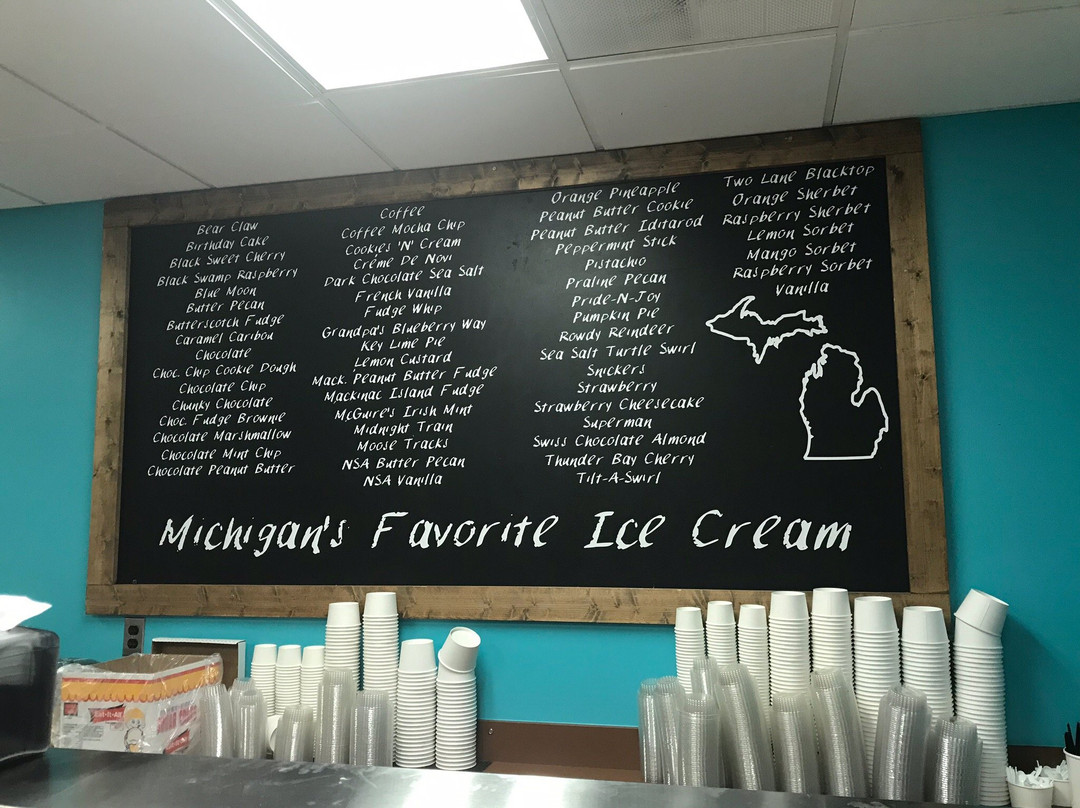 Bear Claw
Birthday Cake
Black Sweet Cherry
Black Swamp Raspberry
Blue Moon
Butter Pecan
Butterscotch Fudge
Caramel Caribou
Chocolate
Choc. Chip Cookie Dough
Chocolate Chip
Chunky Chocolate
Choc. Fudge Brownie
Chocolate Marshmallow
Chocolate Mint Chip
Chocolate Peanut Butter
Coffee
Coffee Mocha Chip
Cookies 'N' Cream
Créme De Novi
Dark Chocolate Sea Salt
French Vanilla
Fudge Whip
Grandpa's Blueberry Way
Key Lime Pie
Lemon Custard
Mack. Peanut Butter Fudge
Mackinac Island Fudge
McGuire's Irish Mint
Midnight Train
Moose Tracks
NSA Butter Pecan
NSA Vanilla
Orange Pineapple
Peanut Butter Cookie
Peanut Butter Iditarod
Peppermint Stick
Pistachio
Praline Pecan
Pride-N-Joy
Pumpkin Pie
Rowdy Reindeer
Sea Salt Turtle Swirl
Snickers
Strawberry
Strawberry Cheesecake
Superman
Swiss Chocolate Almond
Thunder Bay Cherry
Tilt-A-Swirl
Two Lane Blacktop
Orange Sherbet
Raspberry Sherbet
Lemon Sorbet
Mango Sorbet
Raspberry Sorbet
Vanilla
Michigan's Favorite Ice Cream
Eat-It-All